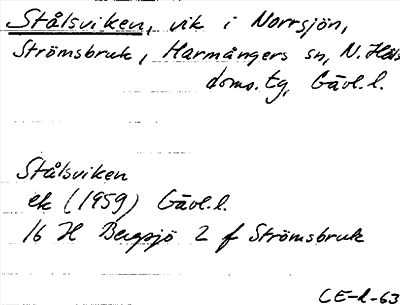 Stålsviken, vik i Norrsjön,
Strömsbruk, Harmångers sn, N. Häls
doms. tg, Gävl. l.
Stålsviken
ek (1959) Gävl. l.
16 H Bergsjö 2 f Strömsbruk
CE-R-63